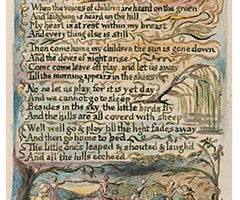 When the voices of children are heard on the green
And laughing is heard on the hill
My heart is at rest within my breast
And every thing else is still
Then come home my children the sun is gone down
And the dews of night arise
Come come leave off play, and let us away
Till the morning appears in the skies
No no let us play, for it is yet day
And we cannot go to sleep
Besides in the sky, the little birds fly
And the hills are all coverd with sheep
Well well go & play till the light fades away
And then go home to bed
The little ones leaped & shouted & laugh'd
And all the hills ecchoed